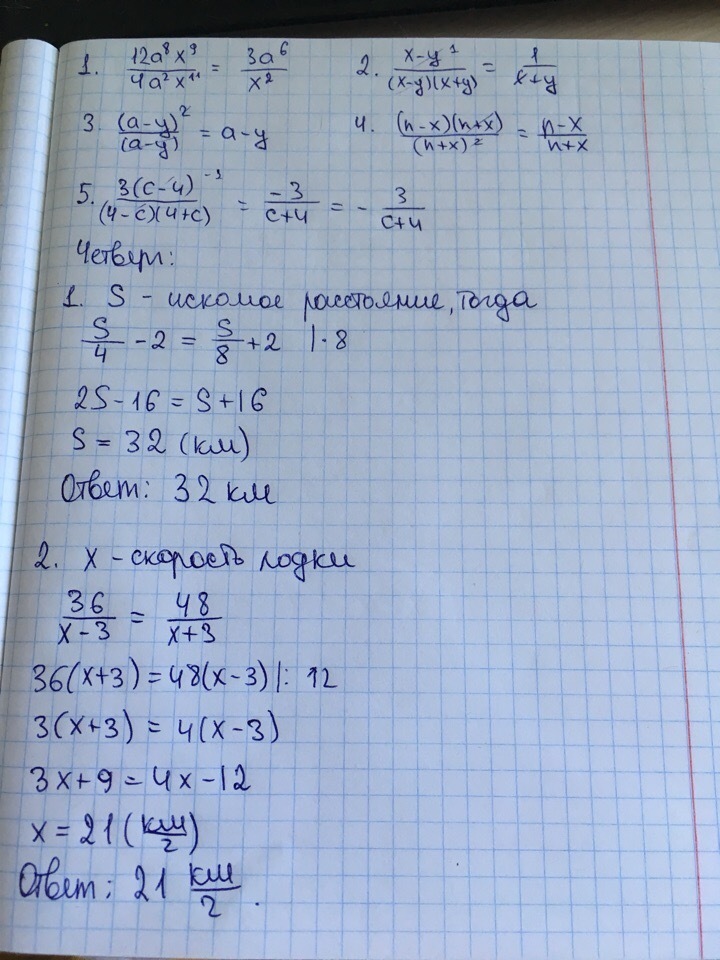 1. 12a⁸x⁹/4a²x¹¹ = 3a⁶/x² 2. x-y ¹/(x-y)(x+y) = 1/x+y
3. (a-y)²/(a-y) = a-y 4. (n-x)(n+x)/(n+x)² = n-x/n+x
5. 3(c-4) ⁻¹/(4-c)(4+c) = -3/c+4 = - 3/c+4
Четверг:
1. S - искомое расстояние, тогда
S/4 - 2 = S/8 + 2 |·8
2S-16 = S+16
S = 32 (км)
Ответ: 32 км
2. x - скорость лодки
36/x-3 = 48/x+3
36(x+3) = 48(x-3) |: 12
3(x+3) = 4(x-3)
3x+9 = 4x-12
x = 21 (км/г)
Ответ: 21 км/г.